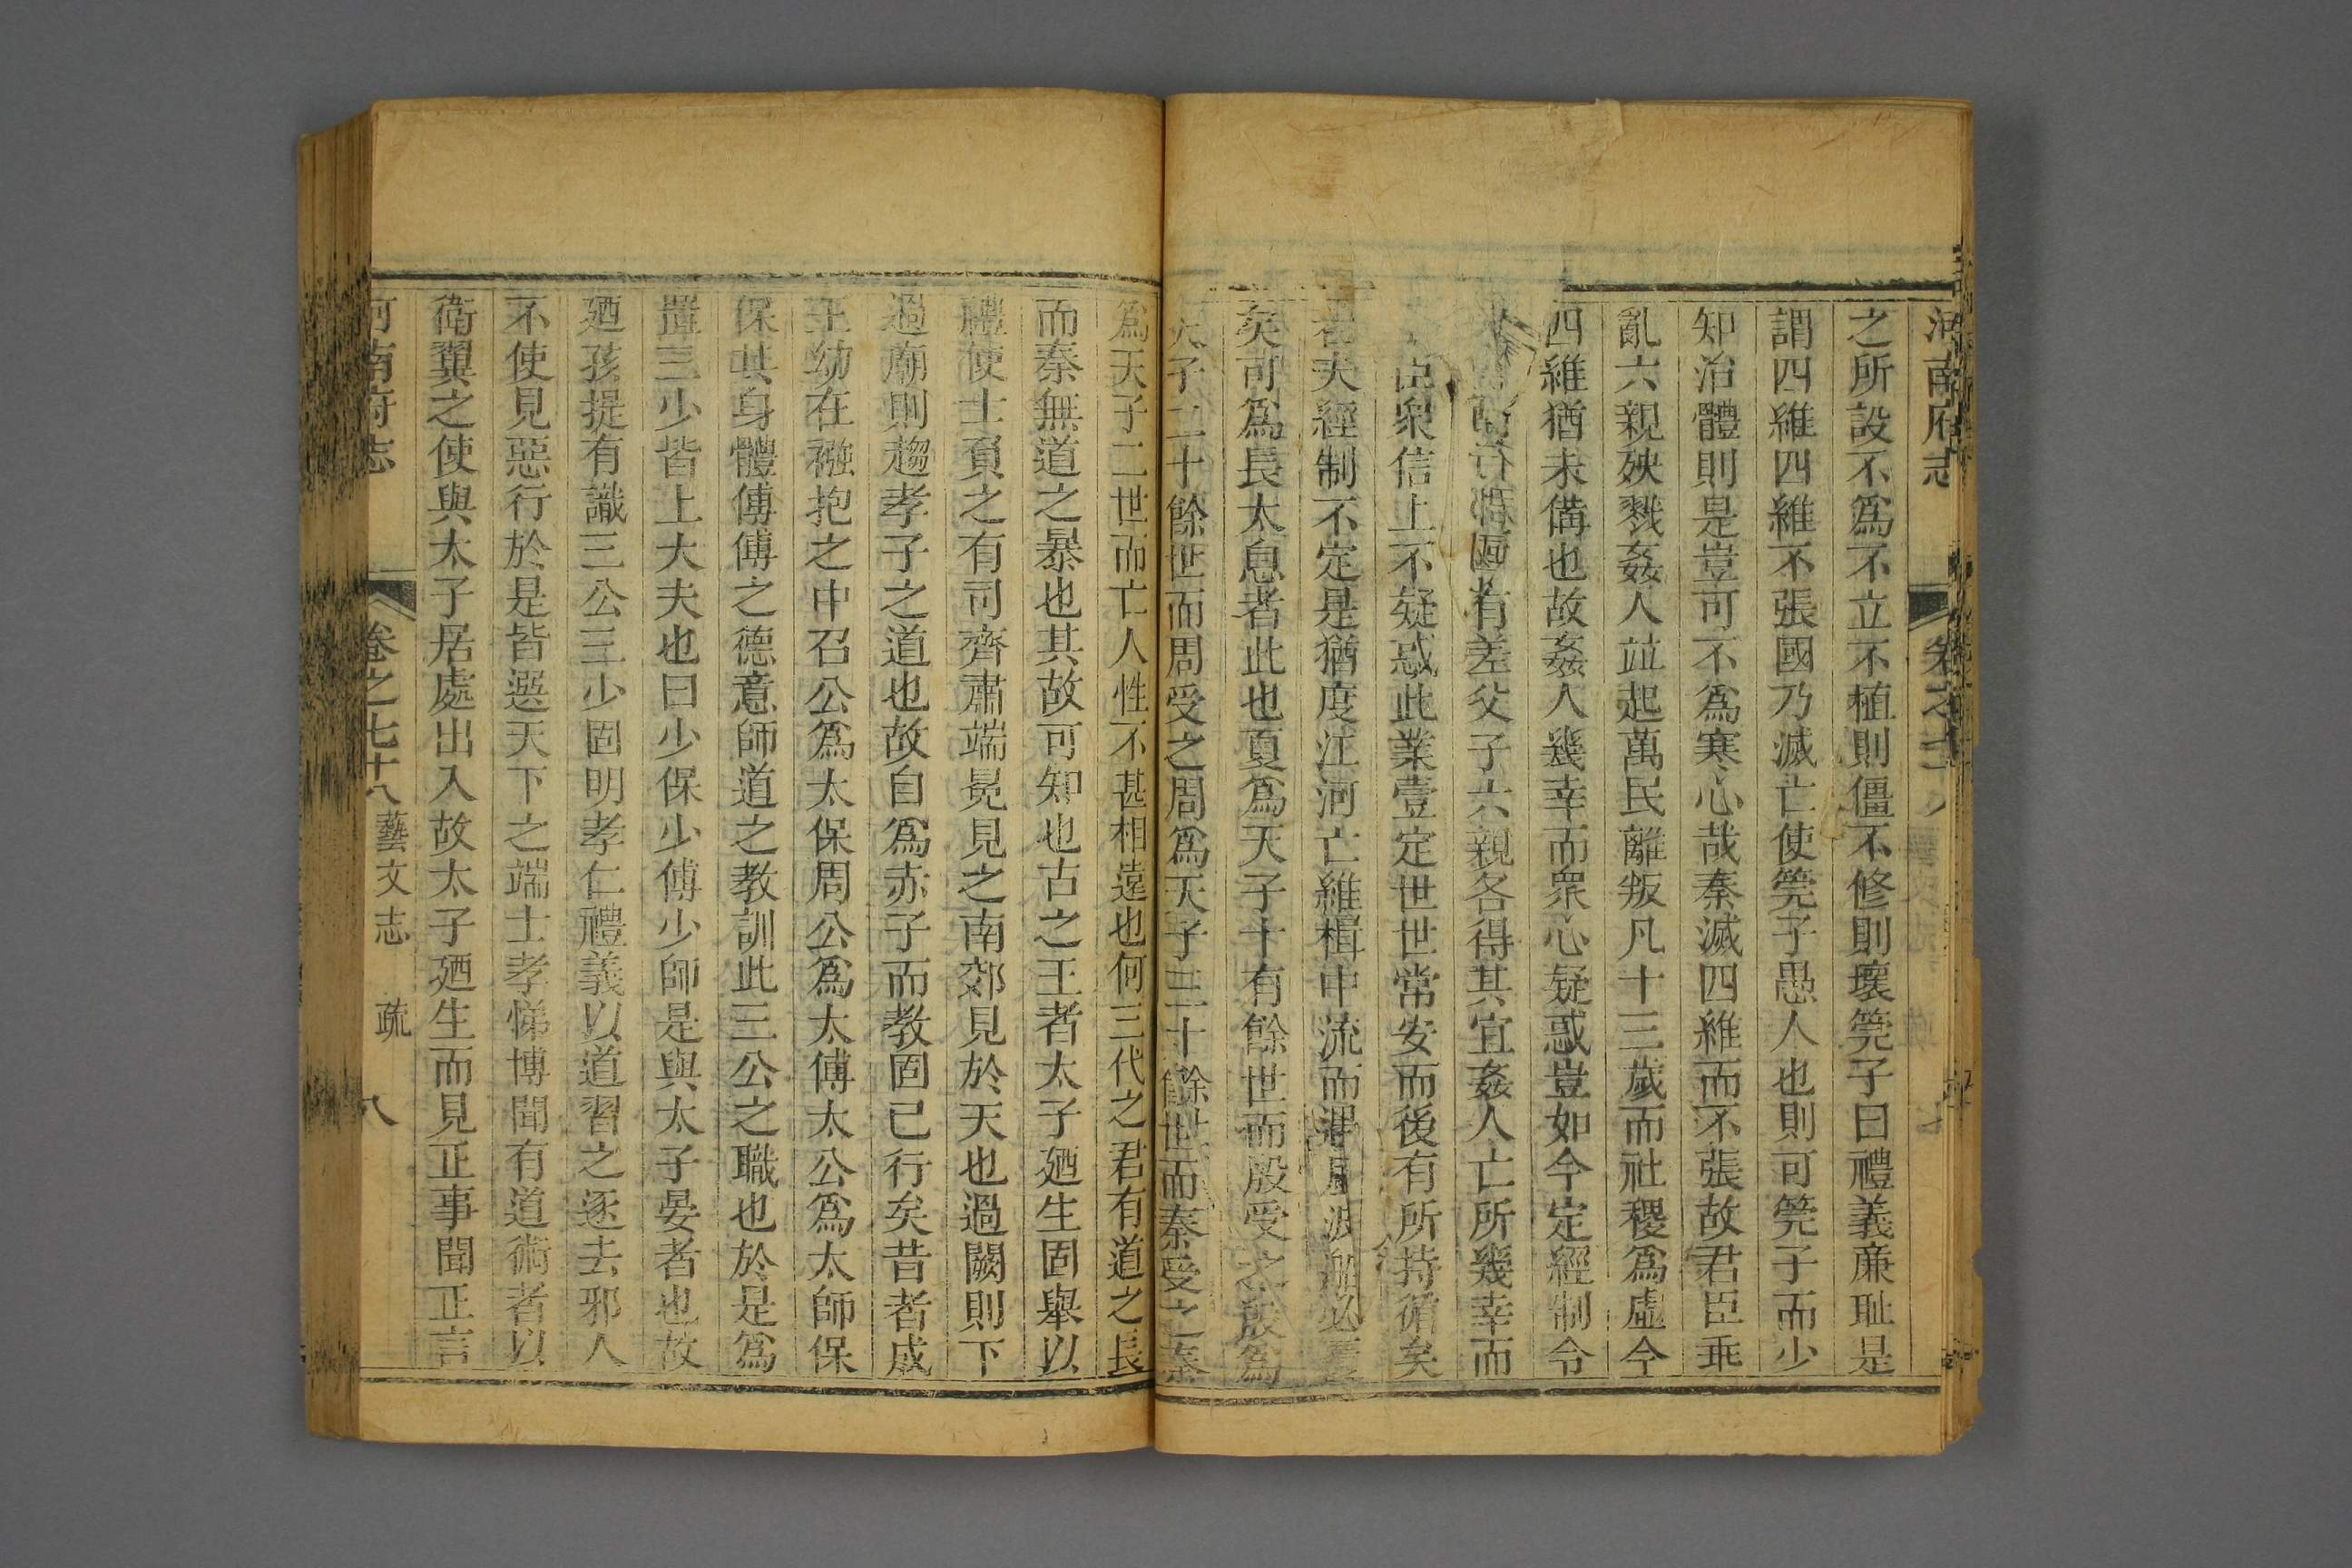 河南府志 卷之七
之所設不爲不立不植則僵不修則壞筦子曰禮義廉耻是
謂四維四維不張國乃滅亡使筦子愚人也則可筦子而少
知治體則是豈可不爲寒心哉秦滅四維而不張故君臣乖
亂六親殃戮姦人竝起萬民離叛凡十三歲而社稷爲虛今
四維猶未備也故姦人幾幸而衆心疑惑豈如今定經制令
有差父子六親各得其宜姦人亡所幾幸而
臣衆信上不疑惑此業壹定世世常安而後有所持循矣
若夫經制不定是猶度江河亡維楫中流而遇風波船必
矣可爲長太息者此也夏爲天子十有餘世而殷受之殷爲
天子二十餘世而周受之周爲天子三十餘世而秦受之秦
爲天子二世而亡人性不甚相遠也何三代之君有道之長
而秦無道之暴也其故可知也古之王者太子廼生固舉以
禮使士負之有司齊肅端冕見之南郊見於天也過闕則下
過廟則趨孝子之道也故自爲赤子而教固已行矣昔者成
王幼在襁抱之中召公爲太保周公爲太傅太公爲太師保
保其身體傅傅之德意師道之教訓此三公之職也於是爲
置三少皆上大夫也曰少保少傅少師是與太子晏者也故
廼孩提有識三公三少固明孝仁禮義以道習之逐去邪人
不使見惡行於是皆選天下之端士孝悌博聞有道術者以
衛翼之使與太子居處出入故太子廼生而見正事聞正言
河南府志 卷之七十八 藝文志 疏 八